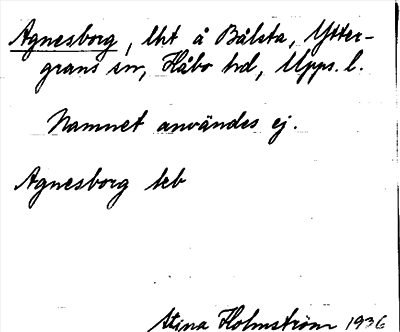 Agnesborg, lht å Bålsta, Ytter-
grans sn, Håbo hd, Upps. l.
Namnet användes ej.
Agnesborg leb
Stina Holmström 1936